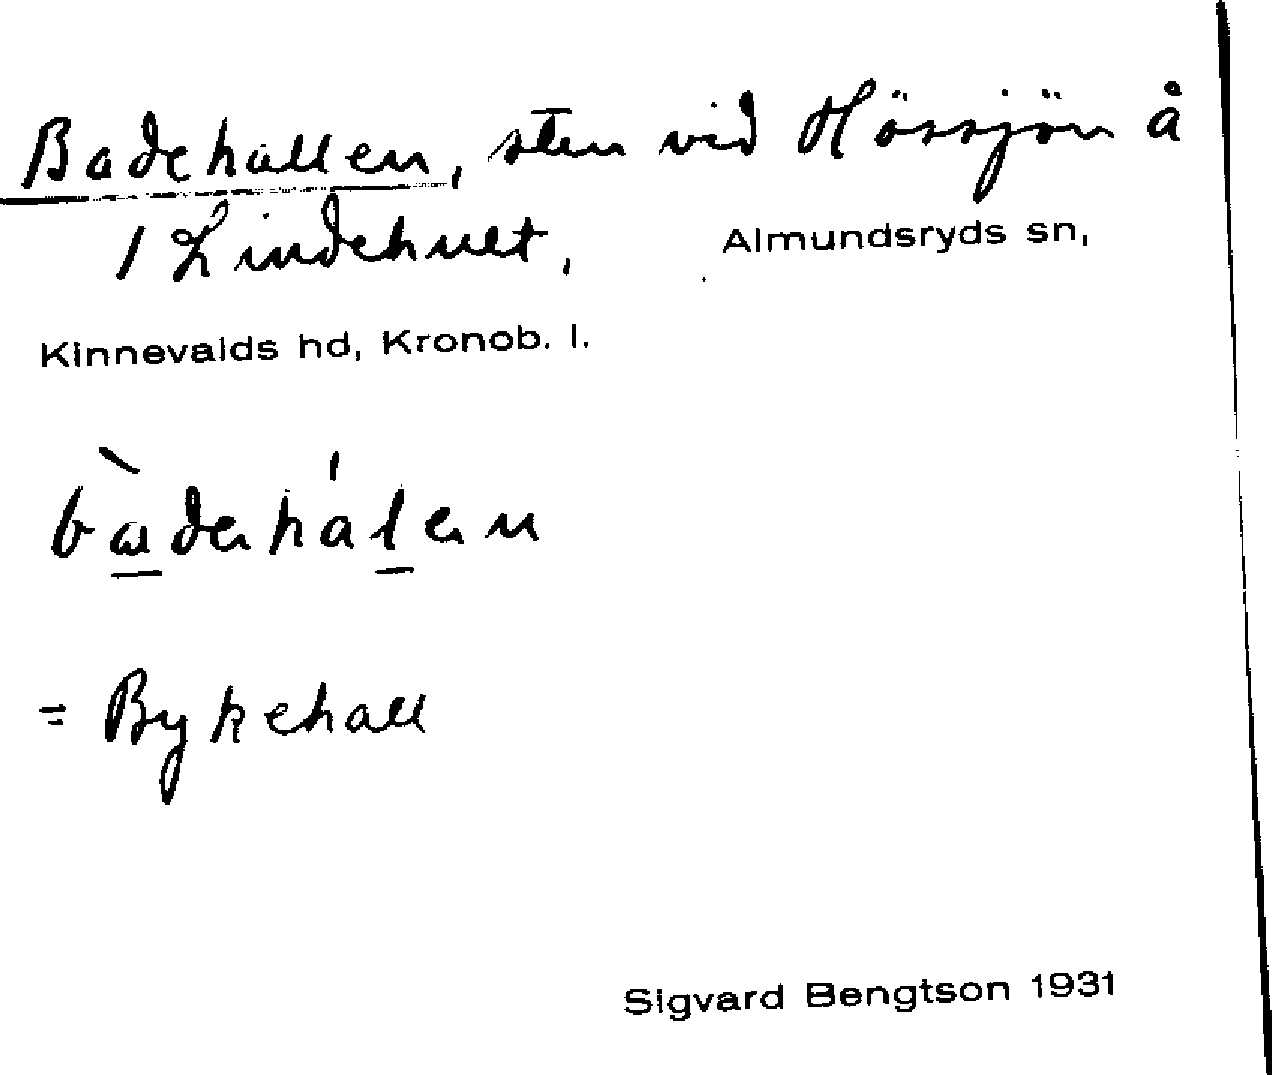 Badehallen, sten vid Hössjön å
1 Lindehult, Almundsryds sn,
Kinnevalds hd, Kronob. l.
= Bykehall
Sigvard Bengtson 1931